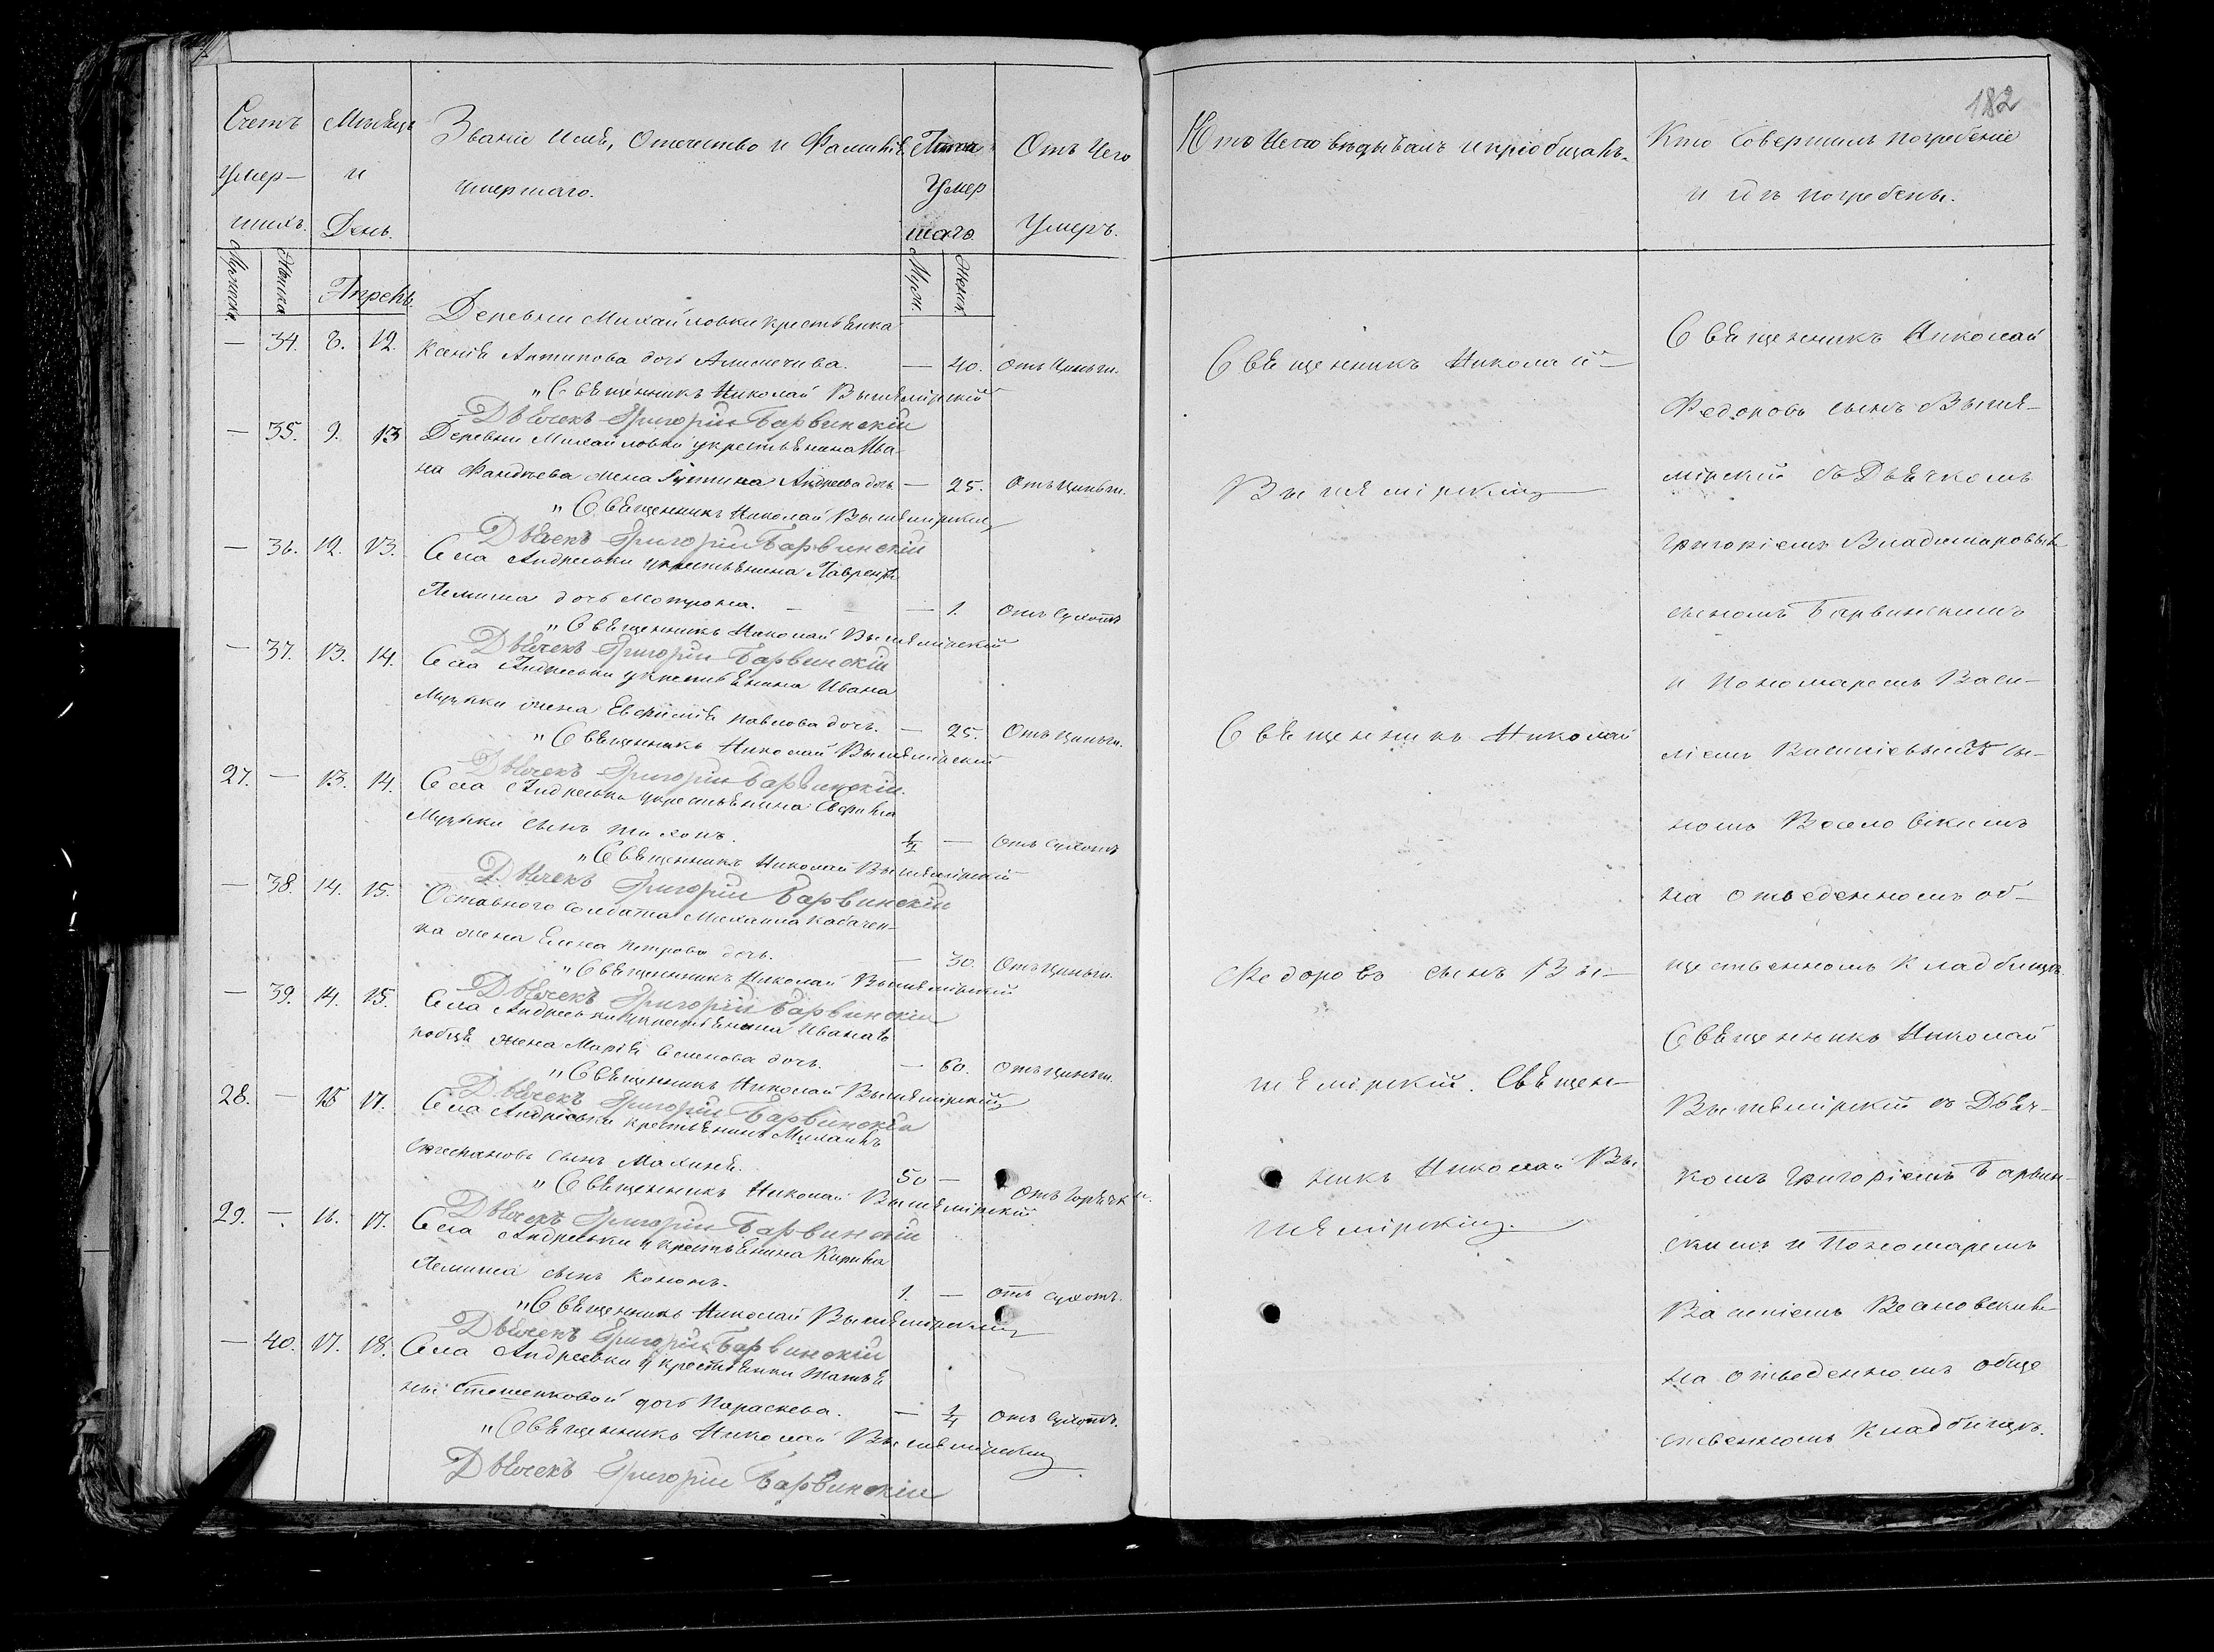 182
Счетъ умер-шихъ.
Мѣсяцъ и День.
Званіе Имя, Отечество и Фамилія умершаго.
Лѣта Умершаго
Отъ Чего Умеръ.
Кто Исповѣдывалъ и пріобщалъ.
Кто Совершилъ погребеніе и гдѣ погребены.
Мужска.
Женска
Апрель.
Муж.
Женск.
Деревни Михайловки крестьянка
— 34. 8. 12. Ксенія Антипова дочь — 40. Отъ Цынги.
"Священникъ Николай Вышемірскій
Дьячекъ Григорій Барвинскій
— 35. 9. 13 Деревни Михайловки у крестьянина Ива-
на жена Андреева дочь — 25. Отъ Цынги.
"Священникъ Николай Вышемірскій
Дьячекъ Григорій Барвинскій
— 36. 12. 13. Села Андреевки у крестьянина
Лемиша дочь Мотрона. — — — 1. Отъ Сухотъ
"Священникъ Николай Вышемірскій
Дьячекъ Григорій Барвинскій
— 37. 13. 14. Села Андреевки у крестьянина Ивана
Музыки жена Евфимія Павлова дочь. — 25. Отъ Цынги.
"Священникъ Николай Вышемірскій
Дьячекъ Григорій Барвинскій
27. — 13. 14. Села Андреевки у крестьянина
Музыки сынъ Тихонъ. — Отъ Сухотъ
"Священникъ Николай Вышемірскій
Дьячекъ Григорій Барвинскій
— 38. 14. 15. Оставного Солдата Михаила Кабачен-
ка жена Елена Петрова дочь. — 30. Отъ Цынги.
"Священникъ Николай Вышемірскій
Дьячекъ Григорій Барвинскій
— 39. 14. 15. Села Андреевки у крестьянина Ивана
жена Марія Семенова дочь. — 60. Отъ Цынги.
"Священникъ Николай Вышемірскій
Дьячекъ Григорій Барвинскій
28. — 15 17. Села Андріевки крестьянинъ Михаилъ
сынъ 50 — Отъ Горячки.
"Священникъ Николай Вышемірскій
Дьячекъ Григорій Барвинскій
29. — 16. 17. Села Андреевки у крестьянина Кирила
Лемиша сынъ Кононъ. 1. — отъ сухотъ.
"Священникъ Николай Вышемірскій
Дьячекъ Григорій Барвинскій
— 40. 17. 18. Села Андреевки у крестьянки Татья
ны дочь Параскева. — Отъ Сухотъ.
"Священникъ Николай Вышемірскій
Дьячекъ Григорій Барвинскій
Священникъ Николай —
Вышемірскій
Священникъ Николай
Федоровъ сынъ Вы-
шемірскій. Священ-
никъ Николай Вы
шемірскій.
Священникъ Николай
Федоровъ сынъ Выше-
мірскій съ Дьячкомъ
Григоріемъ Владимировымъ
сыномъ Барвинскимъ
и Пономаремъ Васи-
ліемъ Василіевымъ сы-
номъ Веселовскимъ
на отведенномъ об-
щественномъ Кладбищѣ.
Священникъ Николай
Вышемірскій съ Дьяч-
комъ Григоріемъ Барвин-
скимъ и Пономаремъ
Василіемъ
на отведенномъ обще
ственномъ Кладбищѣ.